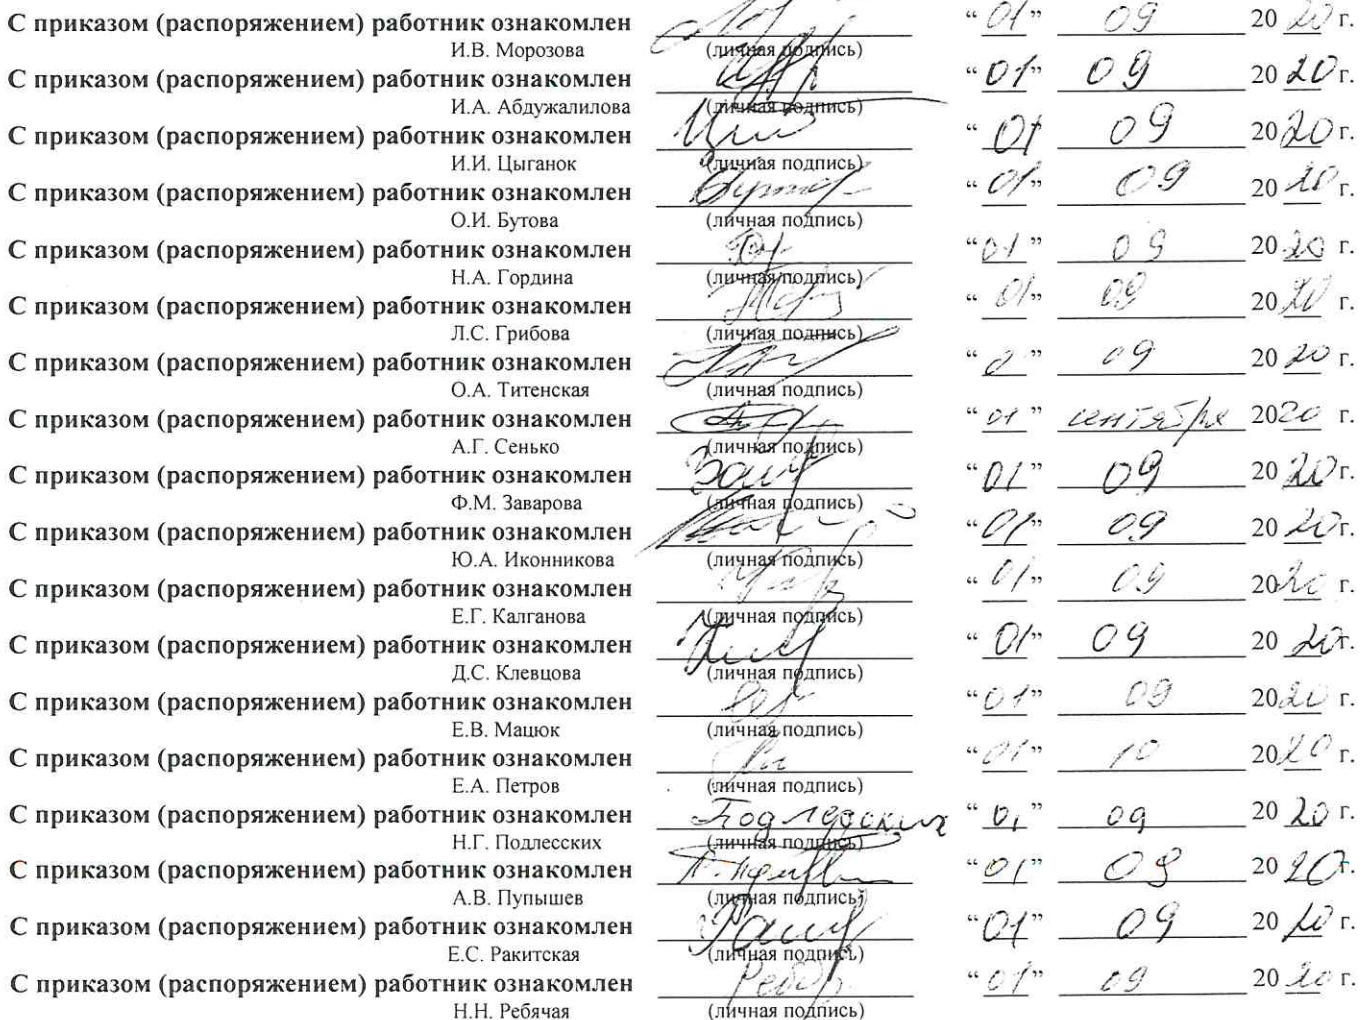 С приказом (распоряжением) работник ознакомлен “ 01 ” 09 20 20 г.
И.В. Морозова (личная подпись)
С приказом (распоряжением) работник ознакомлен “ 01 ” 09 20 20 г.
И.А. Абдужалилова (личная подпись)
С приказом (распоряжением) работник ознакомлен “ 01 09 20 20 г.
И.И. Цыганок (личная подпись)
С приказом (распоряжением) работник ознакомлен “ 01 ” 09 20 20 г.
О.И. Бутова (личная подпись)
С приказом (распоряжением) работник ознакомлен “ 01 ” 09 20 20 г.
Н.А. Гордина (личная подпись)
С приказом (распоряжением) работник ознакомлен “ 01 ” 09 20 20 г.
Л.С. Грибова (личная подпись)
С приказом (распоряжением) работник ознакомлен “ ” 09 20 20 г.
О.А. Титенская (личная подпись)
С приказом (распоряжением) работник ознакомлен “ 01 ” сентября 2020 г.
А.Г. Сенько (личная подпись)
С приказом (распоряжением) работник ознакомлен “ 01 ” 09 20 20 г.
Ф.М. Заварова (личная подпись)
С приказом (распоряжением) работник ознакомлен “ 01 ” 09 20 20 г.
Ю.А. Иконникова (личная подпись)
С приказом (распоряжением) работник ознакомлен “ 01 ” 09 20 20 г.
Е.Г. Калганова (личная подпись)
С приказом (распоряжением) работник ознакомлен “ 01 ” 09 20 20 г.
Д.С. Клевцова (личная подпись)
С приказом (распоряжением) работник ознакомлен “ 01 ” 09 20 20 г.
Е.В. Мацюк (личная подпись)
С приказом (распоряжением) работник ознакомлен “ 01 ” 10 20 20 г.
Е.А. Петров (личная подпись)
С приказом (распоряжением) работник ознакомлен “ 01 ” 09 20 20 г.
Н.Г. Подлесских (личная подпись)
С приказом (распоряжением) работник ознакомлен “ 01 ” 09 20 20 г.
А.В. Пупышев (личная подпись)
С приказом (распоряжением) работник ознакомлен “ 01 ” 09 20 20 г.
Е.С. Ракитская (личная подпись)
С приказом (распоряжением) работник ознакомлен “ 01 ” 09 20 20 г.
Н.Н. Ребячая (личная подпись)